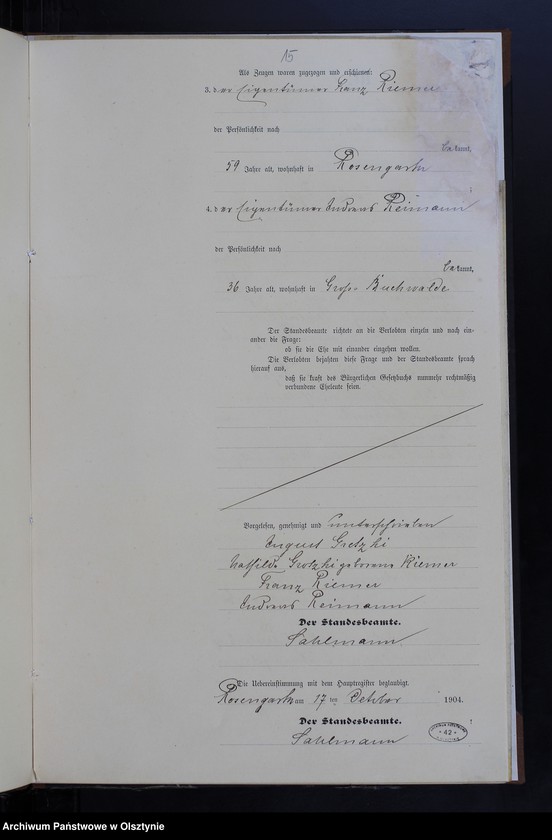 15
Als Zeugen waren zugezogen und erschienen:
3. der Eigentümer Franz Riemer
der Persönlichkeit nach
bekannt,
59 Jahre alt, wohnhaft in Rosengarth
;
4. der Eigentümer Andreas Reimann
der Persönlichkeit nach
bekannt,
36 Jahre alt, wohnhaft in Groß-Buchwalde
Der Standesbeamte richtete an die Verlobten einzeln und nach ein-
ander die Frage:
ob sie die Ehe mit einander eingehen wollen.
Die Verlobten bejahten diese Frage und der Standesbeamte sprach
hierauf aus,
daß sie kraft des Bürgerlichen Gesetzbuchs nunmehr rechtmäßig
verbundene Eheleute seien.
Vorgelesen, genehmigt und unterschrieben
August Grotzki
Mathilde Grotzki geborene Riemer
Franz Riemer
Andreas Reimann
Der Standesbeamte.
Sahlmann
Die Uebereinstimmung mit dem Hauptregister beglaubigt.
Rosengarth am 17 ten October 1904.
Der Standesbeamte.
Sahlmann
* 42 *
Archiwum Państwowe w Olsztynie